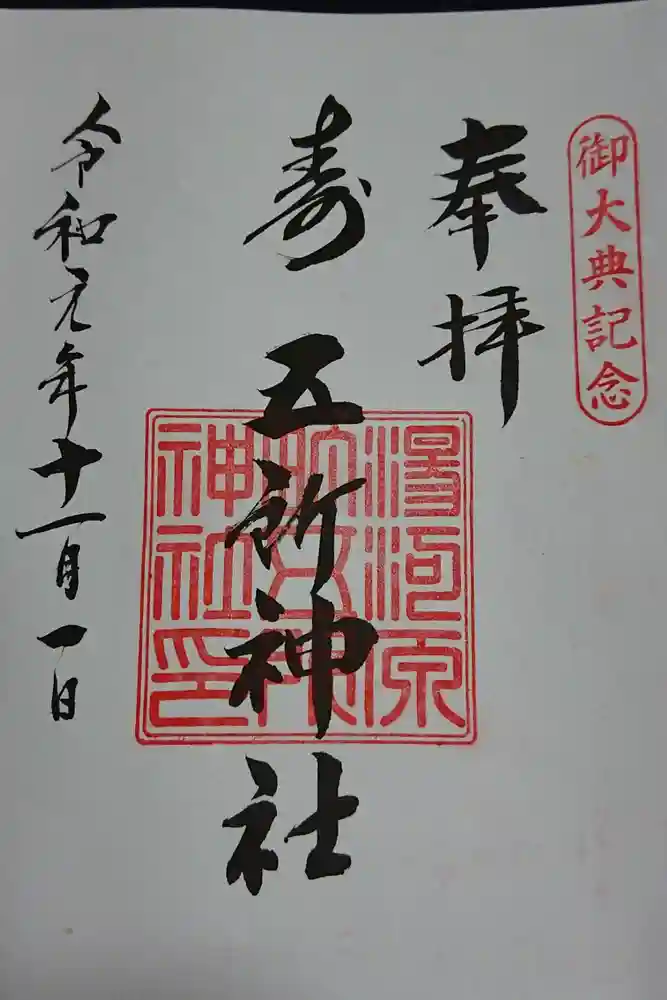 御大典記念
奉拝
寿 五所神社
湯河原
神社印
令和元年十一月一日